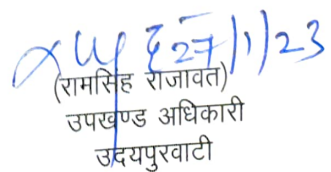 27/1/23
(रामसिंह राजावत)
उपखण्ड अधिकारी
उदयपुरवाटी